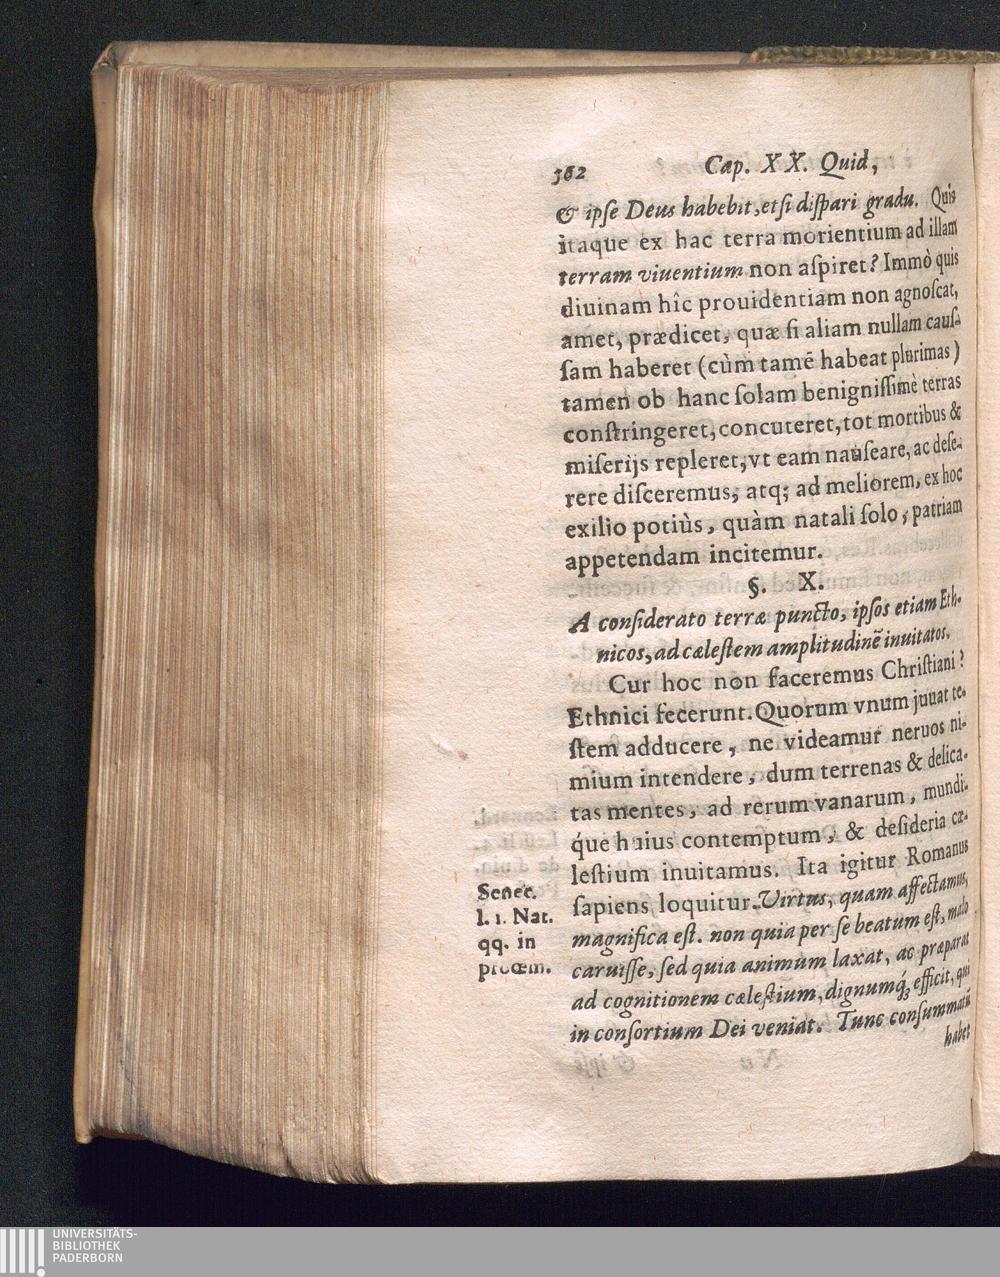 562 Cap. XX. Quid,
& ipſe Deus habebit, etſi diſpari gradu. Quis
itaque ex hac terra morientium ad illam
terram viuentium non aſpiret? Immò quis
diuinam hîc prouidentiam non agnoſcat,
amet, prædicet, quæ ſi aliam nullam cauſ-
ſam haberet (cùm tamẽ habeat plurimas)
tamen ob hanc ſolam benigniſſimè terras
conſtringeret, concuteret, tot mortibus &
miſerijs repleret, vt eam nauſeare, ac deſe-
rere diſceremus, atq; ad meliorem, ex hoc
exilio potiùs, quàm natali ſolo, patriam
appetendam incitemur.
§. X.
A conſiderato terræ puncto, ipſos etiam Eth-
nicos, ad cæleſtem amplitudinẽ inuitatos.
Cur hoc non faceremus Chriſtiani?
Ethnici fecerunt. Quorum vnum juuat te-
ſtem adducere, ne videamur neruos ni-
mium intendere, dum terrenas & delica-
tas mentes, ad rerum vanarum, mundi-
q́ue huius contemptum, & deſideria cæ-
leſtium inuitamus. Ita igitur Romanus
ſapiens loquitur. Virtus, quam affectamus,
magnifica eſt. non quia per ſe beatum eſt, malo
caruiſſe, ſed quia animum laxat, ac præparat
ad cognitionem cæleſtium, dignumq́; efficit, qui
in conſortium Dei veniat. Tunc conſummatũ
habet
Senec.
l. 1. Nat.
qq. in
proœm.
UNIVERSITÄTS-
BIBLIOTHEK
PADERBORN